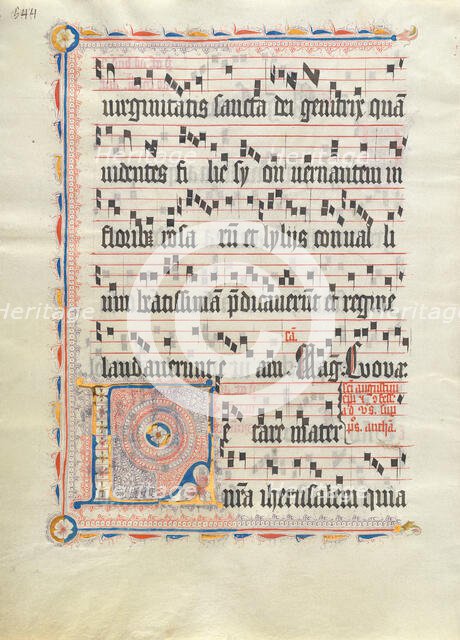 644
uirginitatis sancta dei genitrix quā
uidentes fi lie syon uernantem in
floribꝫ rosa rū et lylijs conual li
um beatissimā p̄dicauerūt et regine
laudauerunt e am. Mag. Euouae
cā.
sci augustini
ad vs. sup
ps. anthā.
Le tare mater
nr̄a iherusalem quia
Heritage
Heritage
Heritage